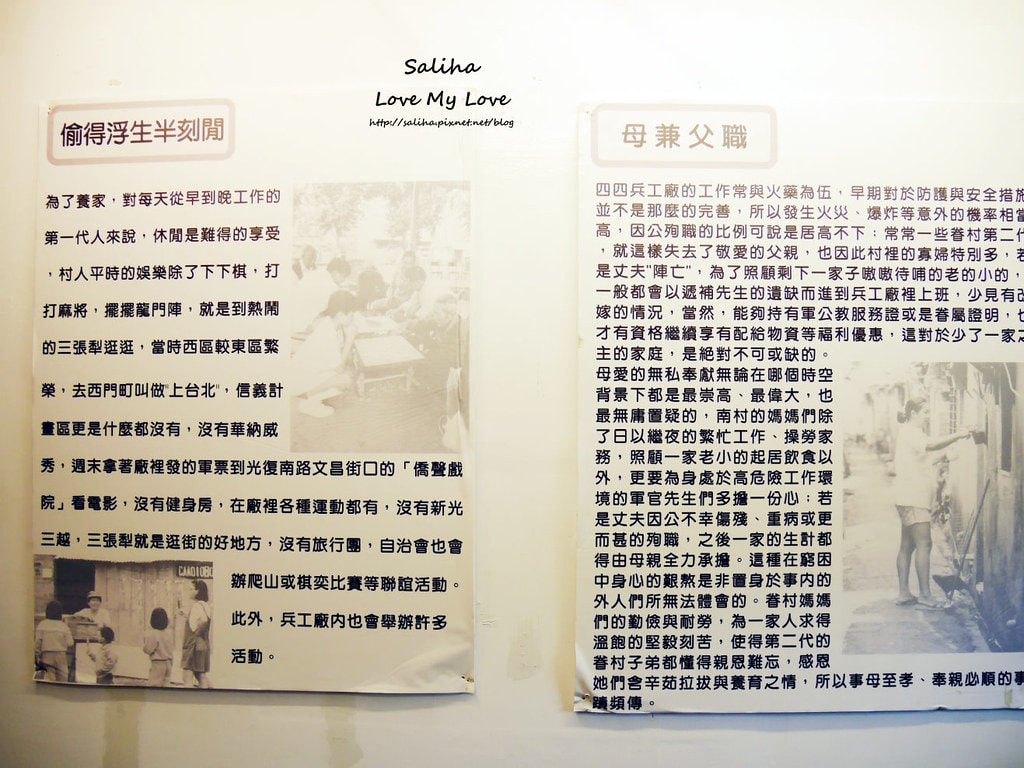 Saliha
Love My Love
http://saliha.pixnet.net/blog
偷得浮生半刻閒
為了養家，對每天從早到晚工作的
第一代人來說，休閒是難得的享受
，村人平時的娛樂除了下下棋，打
打麻將，擺擺龍門陣，就是到熱鬧
的三張犁逛逛，當時西區較東區繁
榮，去西門町叫做"上台北"，信義計
畫區更是什麼都沒有，沒有華納威
秀，週末拿著廠裡發的軍票到光復南路文昌街口的「僑聲戲
院」看電影，沒有健身房，在廠裡各種運動都有，沒有新光
三越，三張犁就是逛街的好地方，沒有旅行團，自治會也會
辦爬山或棋奕比賽等聯誼活動。
此外，兵工廠內也會舉辦許多
活動。
母兼父職
四四兵工廠的工作常與火藥為伍，早期對於防護與安全措施
並不是那麼的完善，所以發生火災、爆炸等意外的機率相當
高，因公殉職的比例可說是居高不下；常常一些眷村第二代
，就這樣失去了敬愛的父親，也因此村裡的寡婦特別多，若
是丈夫"陣亡"，為了照顧剩下一家子嗷嗷待哺的老的小的，
一般都會以遞補先生的遺缺而進到兵工廠裡上班，少見有改
嫁的情況，當然，能夠持有軍公教服務證或是眷屬證明，也
才有資格繼續享有配給物資等福利優惠，這對於少了一家之
主的家庭，是絕對不可或缺的。
母愛的無私奉獻無論在哪個時空
背景下都是最崇高、最偉大，也
最無庸置疑的，南村的媽媽們除
了日以繼夜的繁忙工作、操勞家
務，照顧一家老小的起居飲食以
外，更要為身處於高危險工作環
境的軍官先生們多擔一份心；若
是丈夫因公不幸傷殘、重病或更
而甚的殉職，之後一家的生計都
得由母親全力承擔。這種在窮困
中身心的艱熬是非置身於事內的
外人們所無法體會的。眷村媽媽
們的勤儉與耐勞，為一家人求得
溫飽的堅毅刻苦，使得第二代的
眷村子弟都懂得親恩難忘，感恩
她們含辛茹拉拔與養育之情，所以事母至孝、奉親必順的事
蹟頻傳。